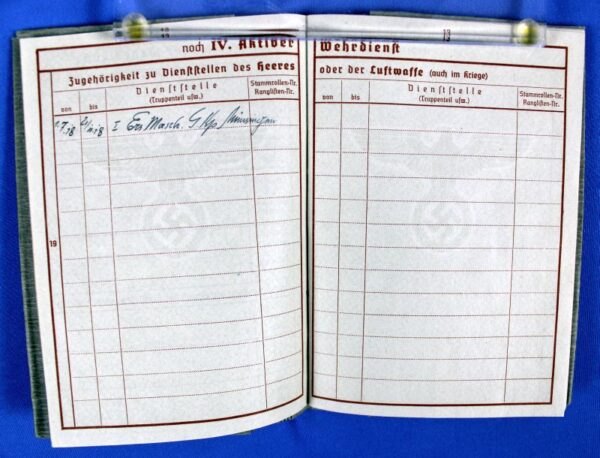 12
noch IV. Aktiver
Zugehörigkeit zu Dienststellen des Heeres
von
bis
Dienststelle
(Truppenteil usw.)
Stammrollen-Nr.
Ranglisten-Nr.
I Ers Masch. G Kp
19
13
Wehrdienst
oder der Luftwaffe (auch im Kriege)
von
bis
Dienststelle
(Truppenteil usw.)
Stammrollen-Nr.
Ranglisten-Nr.